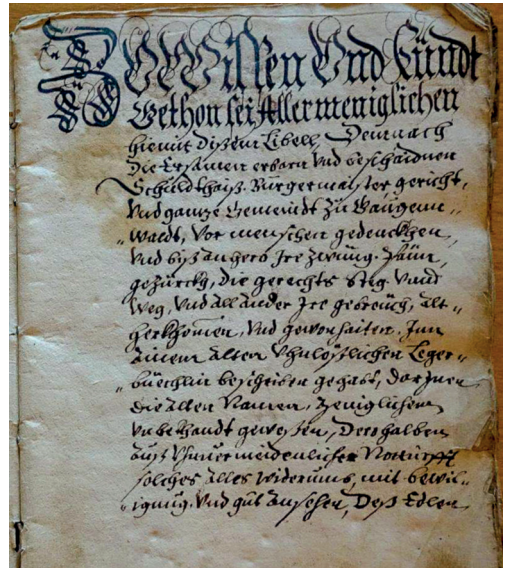 Zů Wissen Vnd Kündt
Gethon sei Allermeniglichen
hiemit dißem Libell, Demnach
Die Ersamen erbarn Vnd beschaidnen
Schuldthaiß Burgermaister gericht,
Vnd ganze Gemeindt zů
Waldt, Vor menschen gedenckhen,
Vnd biß anhero Jre Zwing.
die gerechte Steg Vnnd
Weg, Vnd All ander Jre gebreüch, alt-
herkhomen, Vnd gewonhaiten, Jnn
ainem Alten Leger-
büechlin beschriben gehabt, darjnen
die Alten Namen, Meniglichem
Vnbekhandt gewesen, Derohalben
Auß Vnuermeidenlicher Notturfft
solches alles widerumb, mit bewil-
ligung Vnd gůt Ansehen, Deß Edlen